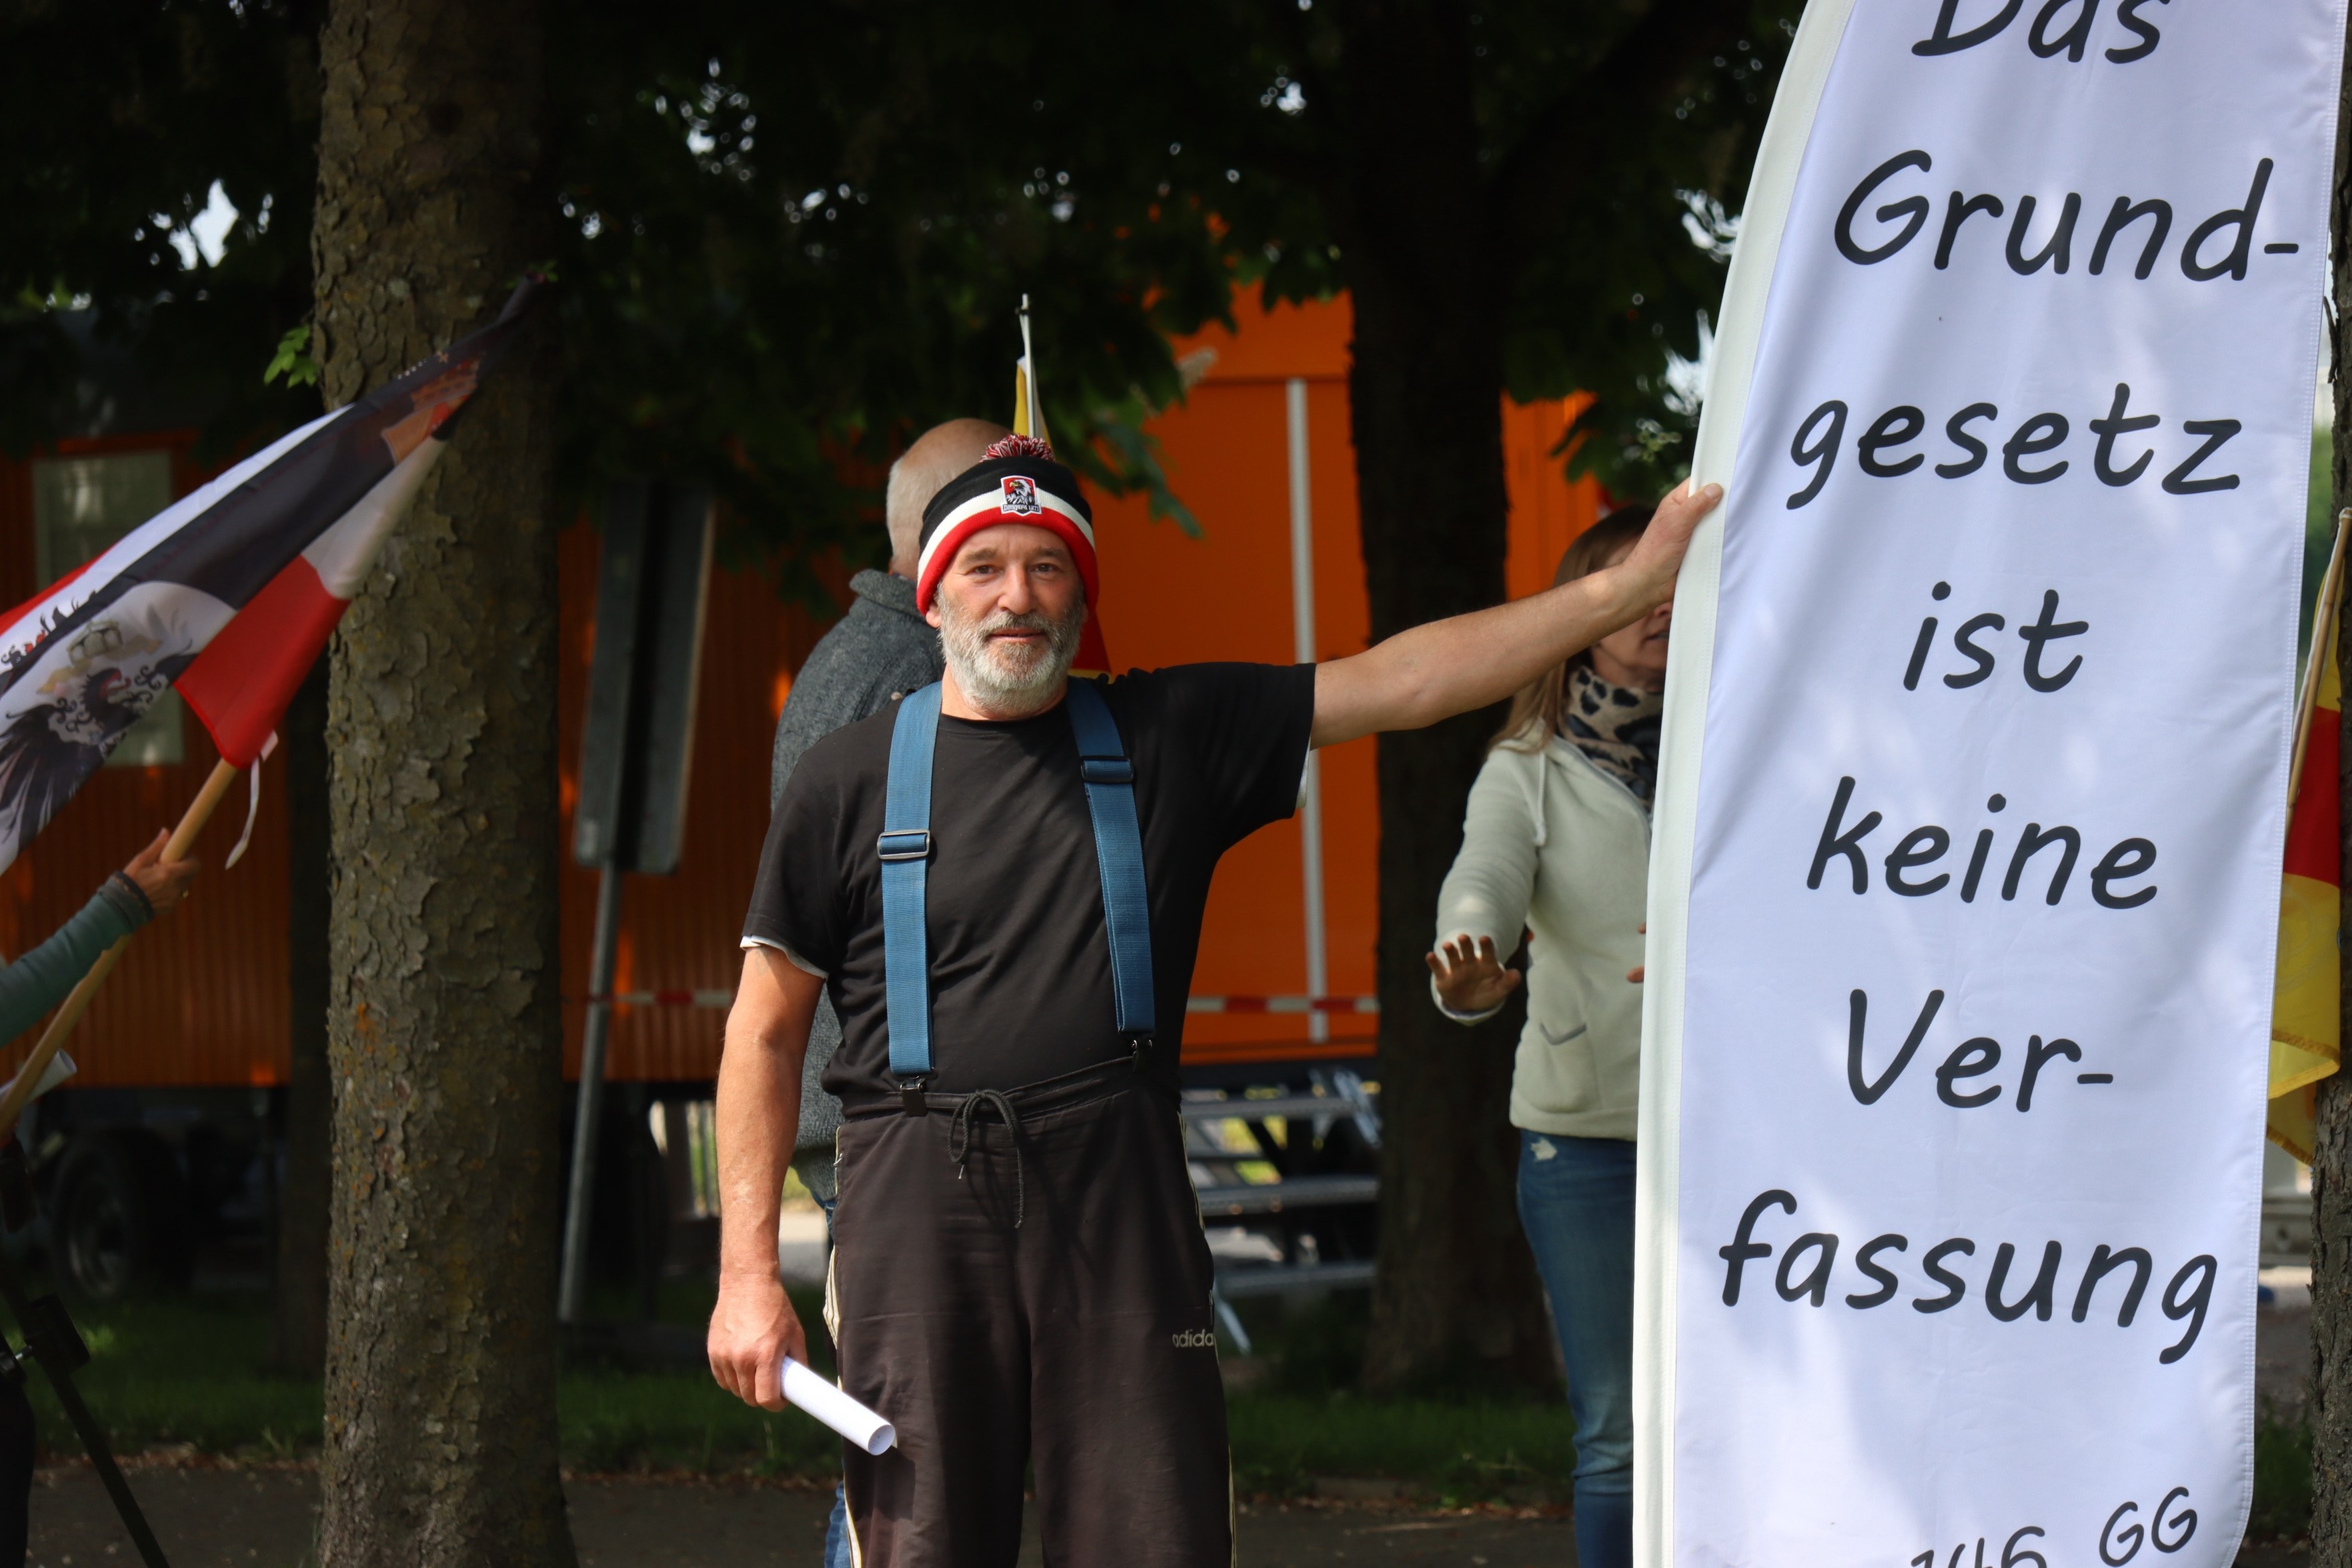 Das
Grund-
gesetz
ist
keine
Ver-
fassung
146 GG
adida